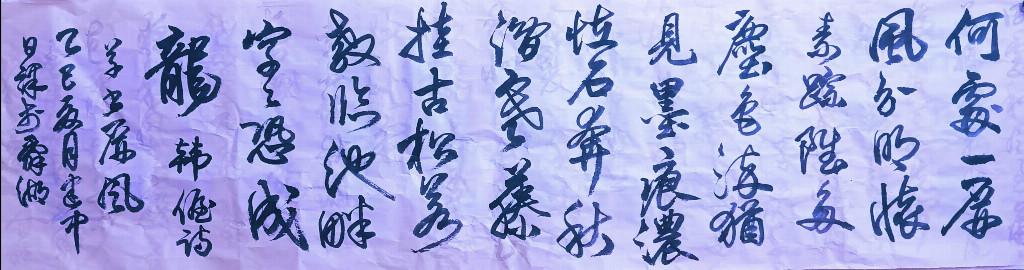 何處一屏
風分明懷
素蹤雖多
塵色染猶
見墨痕濃
怪石奔秋
澗寒藤
挂古松若
教臨池畔
字々恐成
龍 韩偓詩
草书屏風
乙巳夏月